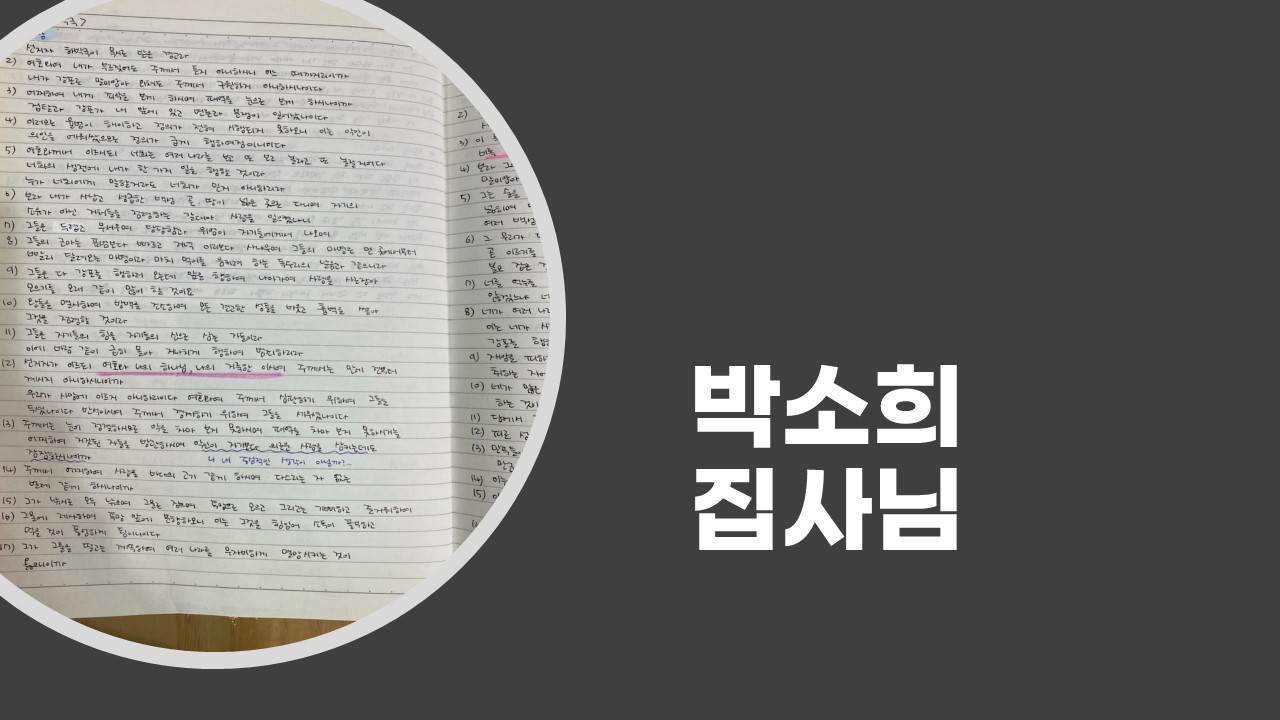 선지자 하박국이 묵시로 받은 경고라
2) 여호와여 내가 부르짖어도 주께서 듣지 아니하시니 어느 때까지리이까
내가 강포로 말미암아 외쳐도 주께서 구원하지 아니하시나이다
3) 어찌하여 내게 죄악을 보게 하시며 패역을 눈으로 보게 하시나이까
겁탈과 강포가 내 앞에 있고 변론과 분쟁이 일어났나이다
4) 이러므로 율법이 해이하고 정의가 전혀 시행되지 못하오니 이는 악인이
의인을 에워쌌으므로 정의가 굽게 행하여짐이니이다
5) 여호와께서 이르시되 너희는 여러 나라를 보고 또 보고 놀라고 또 놀랄지어다
너희의 생전에 내가 한 가지 일을 행할 것이라
누가 너희에게 말할지라도 너희가 믿지 아니하리라
6) 보라 내가 사납고 성급한 백성 곧 땅이 넓은 곳으로 다니며 자기의
소유가 아닌 거처들을 점령하는 갈대아 사람을 일으켰나니
7) 그들은 두렵고 무서우며 당당함과 위엄이 자기들에게서 나오며
8) 그들의 군마는 표범보다 빠르고 저녁 이리보다 사나우며 그들의 마병은 먼 곳에서부터
빨리 달려오는 마병이라 마치 먹이를 움키려 하는 독수리의 날음과 같으니라
9) 그들은 다 강포를 행하러 오는데 앞을 향하여 나아가며 사람을 사로잡아
모으기를 모래 같이 많이 할 것이요
10) 왕들을 멸시하며 방백을 조소하며 모든 견고한 성들을 비웃고 흉벽을 쌓아
그것을 점령할 것이라
11) 그들은 자기들의 힘을 자기들의 신으로 삼는 자들이라
이에 바람 같이 급히 몰아 지나치게 행하여 범죄하리라
12) 선지자가 이르되 여호와 나의 하나님, 나의 거룩한 이시여 주께서는 만세 전부터
계시지 아니하시니이까
우리가 사망에 이르지 아니하리이다 여호와여 주께서 심판하기 위하여 그들을
두셨나이다 반석이시여 주께서 경계하기 위하여 그들을 세우셨나이다
13) 주께서는 눈이 정결하시므로 악을 차마 보지 못하시며 패역을 차마 보지 못하시거늘
어찌하여 거짓된 자들을 방관하시며 악인이 자기보다 의로운 사람을 삼키는데도
잠잠하시나이까
나 내 주관적인 생각이 아닐까?...
14) 주께서 어찌하여 사람을 바다의 고기 같게 하시며 다스리는 자 없는
벌레 같게 하시나이까
15) 그가 낚시로 모두 낚으며 그물로 잡으며 투망으로 모으고 그리고는 기뻐하고 즐거워하여
16) 그물에 제사하며 투망 앞에 분향하오니 이는 그것을 힘입어 소득이 풍부하고
먹을 것이 풍성하게 됨이니이다
17) 그가 그물을 떨고는 계속하여 여러 나라를 무자비하게 멸망시키는 것이
옳으니이까
박소희
집사님